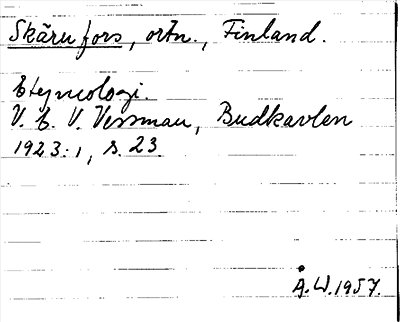 Skäru fors, ortn., Finland.
Etymologi.
V. E. V. Wessman, Budkavlen
1923:1, s. 23
Å.W. 1957.